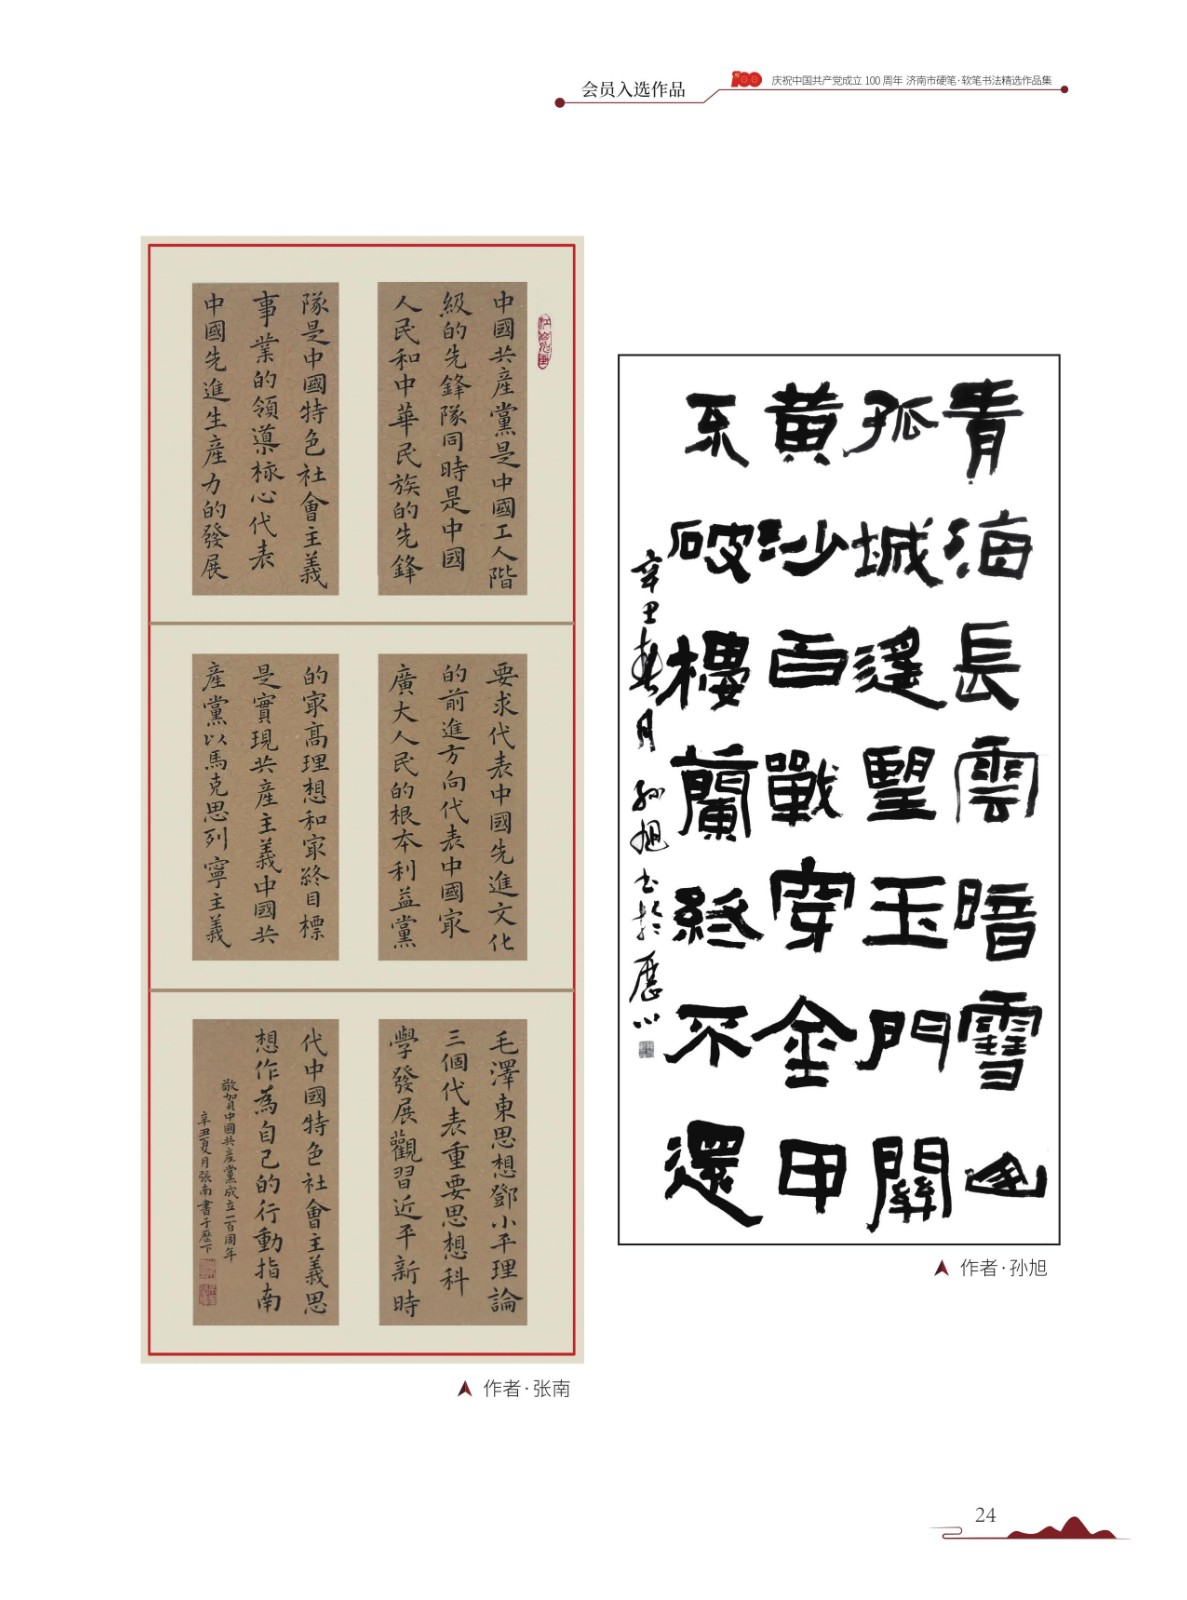 会员入选作品
100 庆祝中国共产党成立 100 周年 济南市硬笔·软笔书法精选作品集
中國共產黨是中國工人階
級的先鋒隊同時是中國
人民和中華民族的先鋒
隊是中國特色社會主義
事業的領導核心代表
中國先進生產力的發展
要求代表中國先進文化
的前進方向代表中國最
廣大人民的根本利益黨
的最高理想和最終目標
是實現共產主義中國共
產黨以馬克思列寧主義
毛澤東思想鄧小平理論
三個代表重要思想科
學發展觀習近平新時
代中國特色社會主義思
想作為自己的行動指南
敬賀中國共產黨成立一百周年
辛丑夏月張南書于歷下
作者·张南
青海長雲暗雪山
孤城遥望玉門關
黄沙百戰穿金甲
不破樓蘭終不還
辛丑春月 孙旭书於歷下
作者·孙旭
24